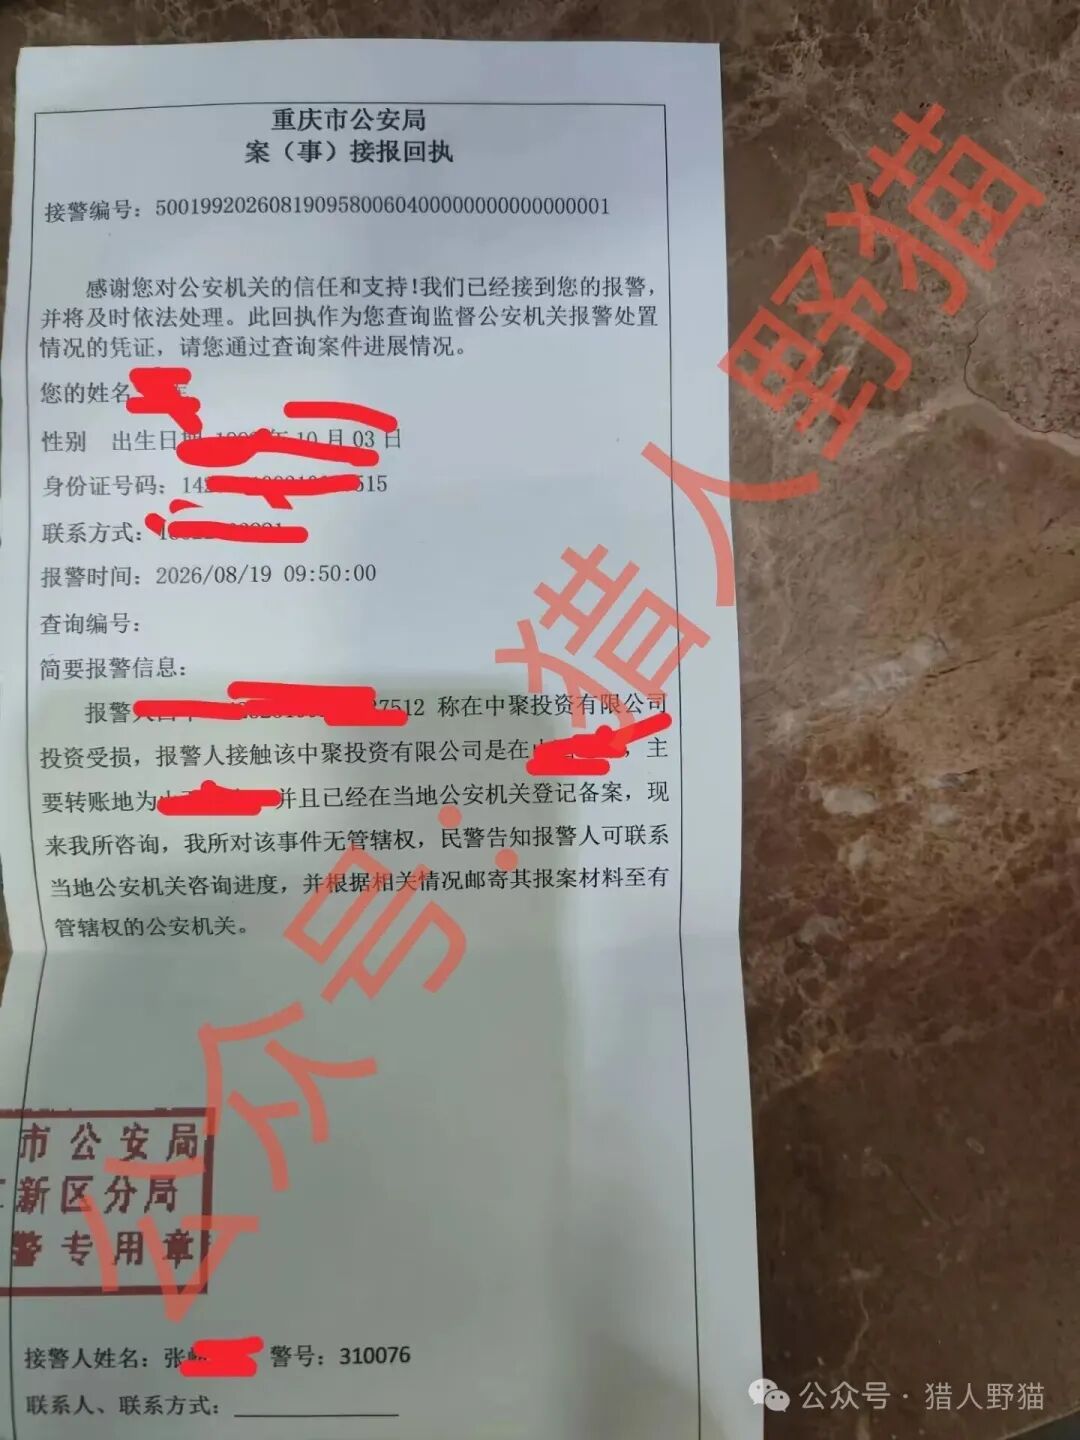 重庆市公安局
案（事）接报回执
接警编号：5001992026081909580060400000000000000001
感谢您对公安机关的信任和支持！我们已经接到您的报警，
并将及时依法处理。此回执作为您查询监督公安机关报警处置
情况的凭证，请您通过查询案件进展情况。
您的姓名
性别 出生日期 年10月03日
身份证号码：14 515
联系方式：
报警时间：2026/08/19 09:50:00
查询编号：
简要报警信息：
报警人 7512 称在中聚投资有限公司
投资受损，报警人接触该中聚投资有限公司是在 ，主
要转账地为 并且已经在当地公安机关登记备案，现
来我所咨询，我所对该事件无管辖权，民警告知报警人可联系
当地公安机关咨询进度，并根据相关情况邮寄其报案材料至有
管辖权的公安机关。
市公安局
新区分局
警专用章
接警人姓名：张 警号：310076
联系人、联系方式：
公众号：猎人野猫
公众号·猎人野猫